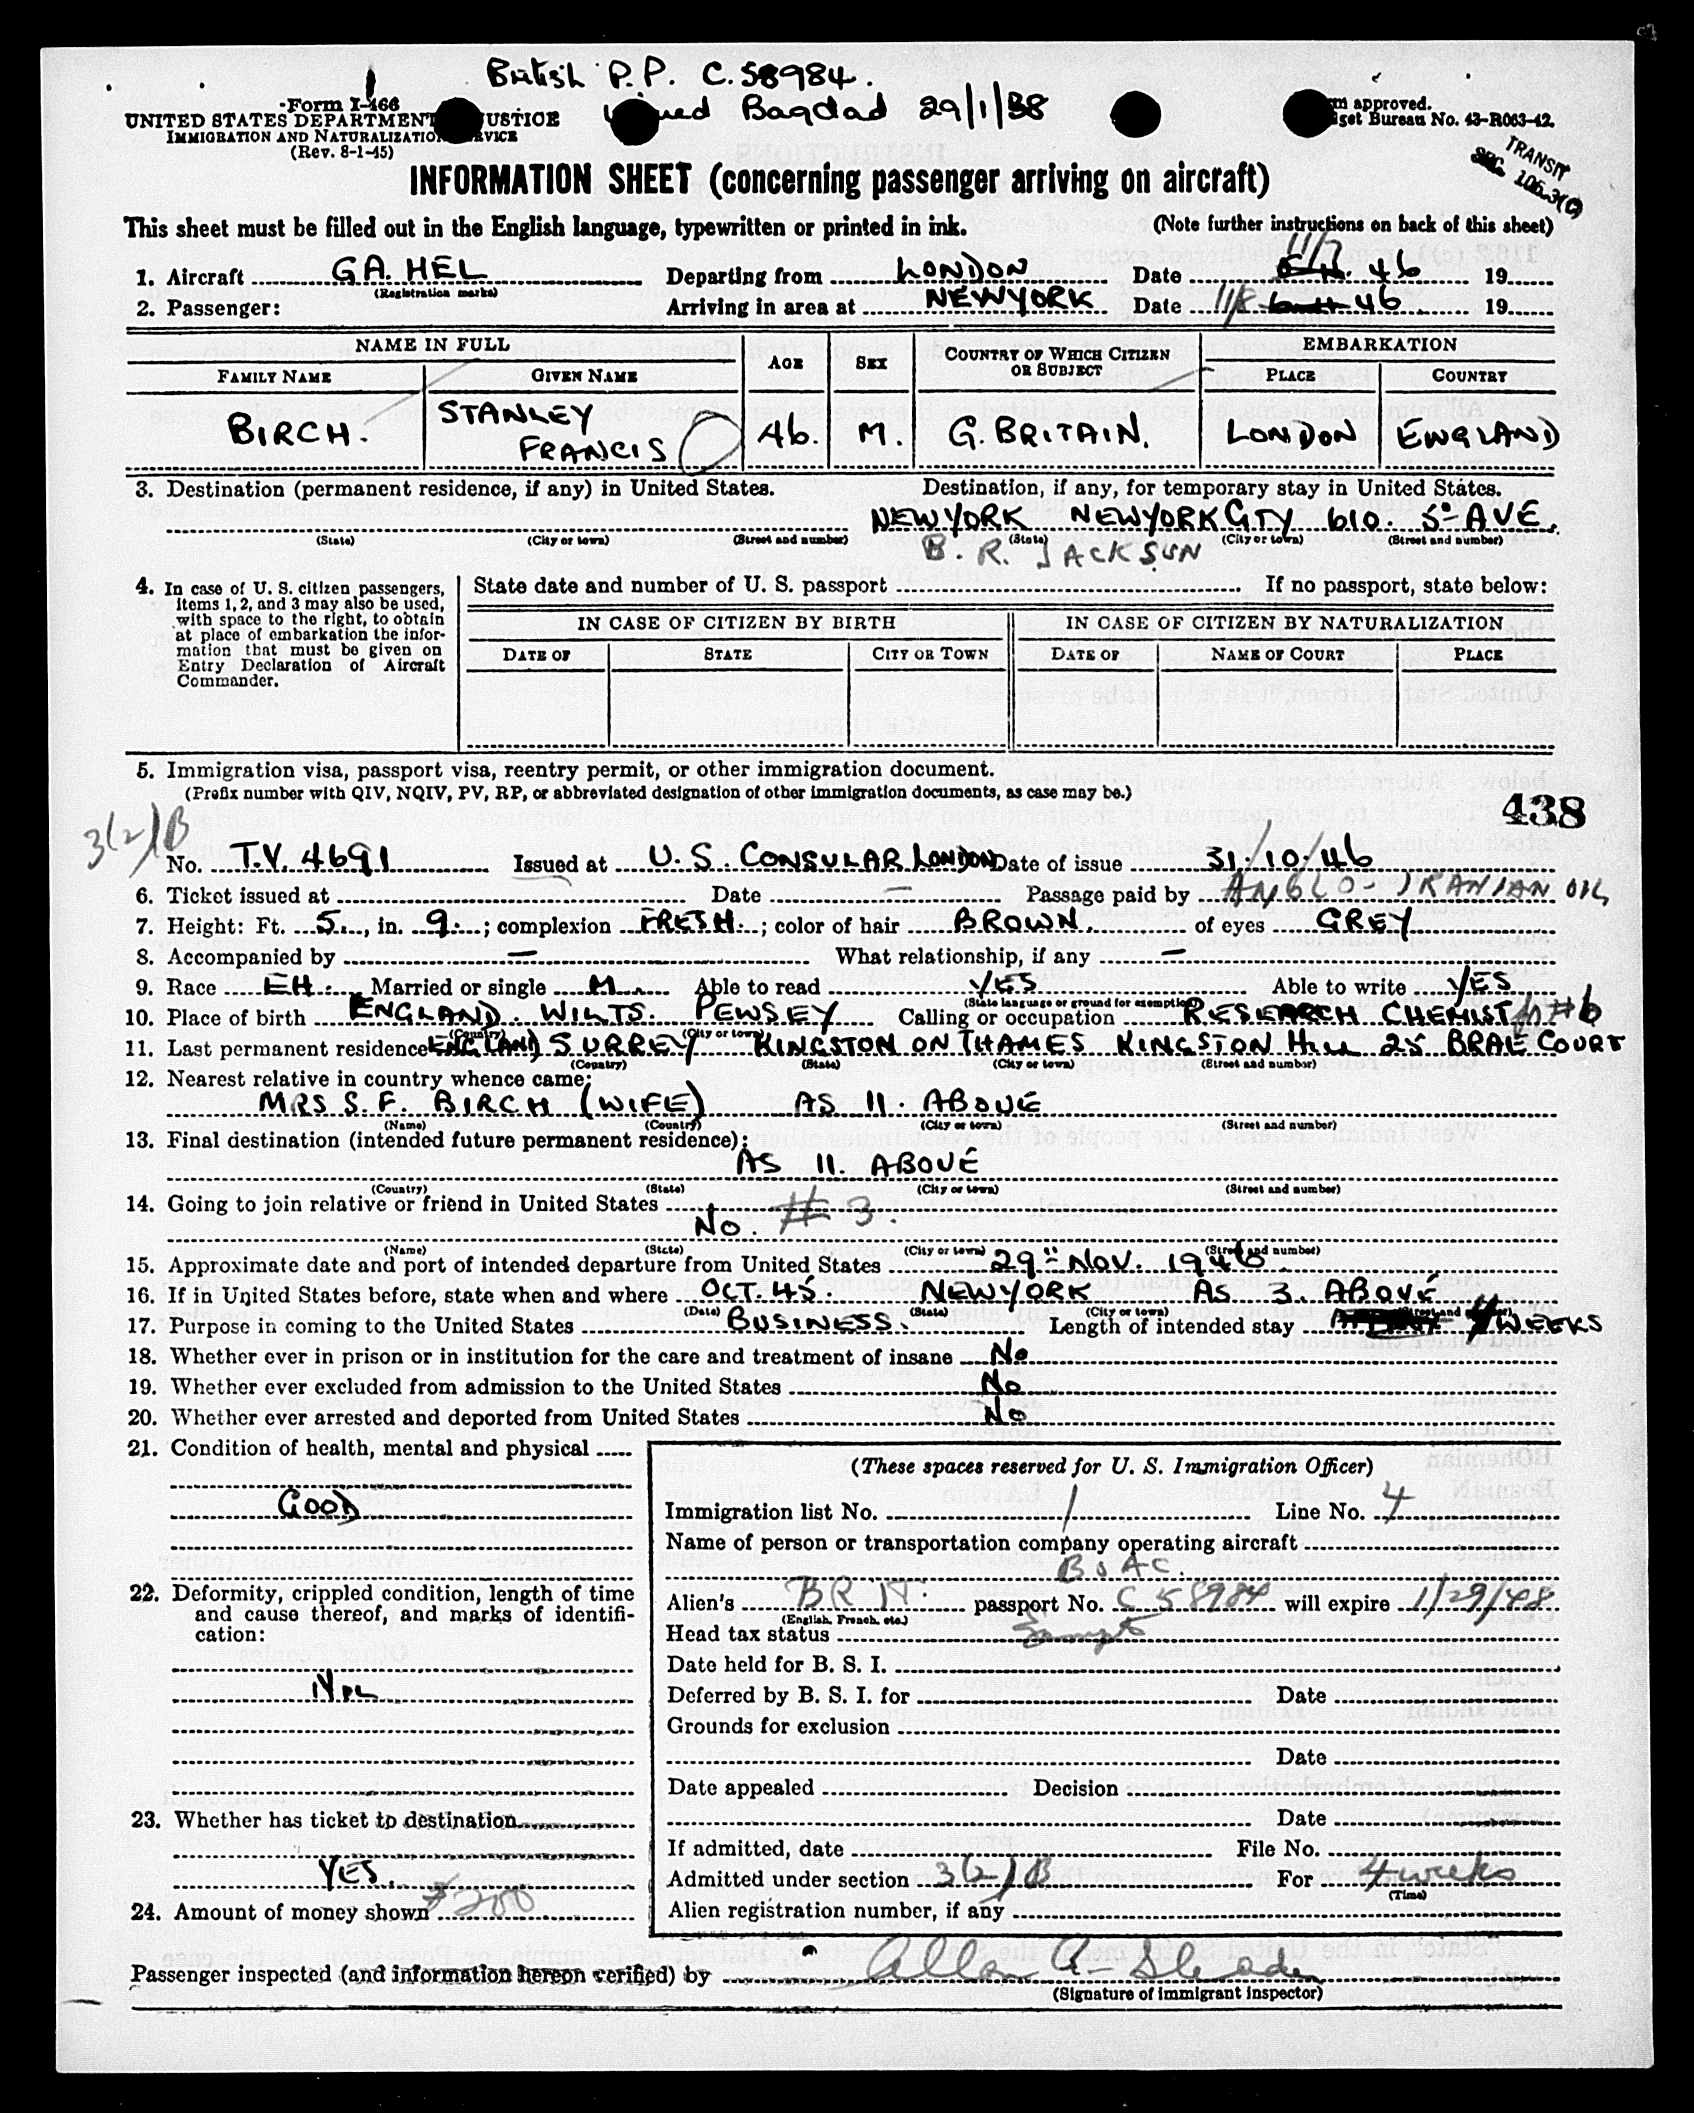 British P.P. C. 58984.
Bagdad 29/1/38
Form I-466
UNITED STATES DEPARTMENT JUSTICE
IMMIGRATION AND NATURALIZATION SERVICE
(Rev. 8-1-45)
approved.
Bureau No. 43-R063-42.
TRANSIT
SEC. 105.3(C)
INFORMATION SHEET (concerning passenger arriving on aircraft)
This sheet must be filled out in the English language, typewritten or printed in ink.
(Note further instructions on back of this sheet)
1. Aircraft GA. HEL Departing from LONDON Date 11/7 46 19
(Registration marks)
2. Passenger: Arriving in area at NEWYORK Date 11/8 46 19
NAME IN FULL AGE SEX COUNTRY OF WHICH CITIZEN OR SUBJECT EMBARKATION
FAMILY NAME GIVEN NAME PLACE COUNTRY
BIRCH. STANLEY FRANCIS 46. M. G. BRITAIN. LONDON ENGLAND
3. Destination (permanent residence, if any) in United States. Destination, if any, for temporary stay in United States.
NEWYORK NEWYORK CITY 610. 5th AVE.
(State) (City or town) (Street and number) (State) (City or town) (Street and number)
B. R. JACKSON
4. In case of U. S. citizen passengers, items 1, 2, and 3 may also be used, with space to the right, to obtain at place of embarkation the information that must be given on Entry Declaration of Aircraft Commander.
State date and number of U. S. passport If no passport, state below:
IN CASE OF CITIZEN BY BIRTH IN CASE OF CITIZEN BY NATURALIZATION
DATE OF STATE CITY OR TOWN DATE OF NAME OF COURT PLACE
5. Immigration visa, passport visa, reentry permit, or other immigration document.
(Prefix number with QIV, NQIV, PV, RP, or abbreviated designation of other immigration documents, as case may be.)
438
3(2)B
No. T.V. 4691 Issued at U.S. CONSULAR LONDON Date of issue 31/10/46
6. Ticket issued at Date — Passage paid by ANGLO-IRANIAN OIL
7. Height: Ft. 5., in. 9.; complexion FRESH.; color of hair BROWN. of eyes GREY
8. Accompanied by — What relationship, if any —
9. Race EH. Married or single M. Able to read YES Able to write YES
(State language or ground for exemption)
10. Place of birth ENGLAND. WILTS. PEWSEY Calling or occupation RESEARCH CHEMIST
(Country) (City or town)
11. Last permanent residence ENGLAND SURREY KINGSTON ON THAMES KINGSTON HILL 25 BRAE COURT
(Country) (State) (City or town) (Street and number)
12. Nearest relative in country whence came:
MRS S. F. BIRCH (WIFE) AS 11. ABOVE
(Name) (Country) (City or town) (Street and number)
13. Final destination (intended future permanent residence):
AS 11. ABOVE
(Country) (State) (City or town) (Street and number)
14. Going to join relative or friend in United States
NO. # 3.
(Name) (State) (City or town) (Street and number)
15. Approximate date and port of intended departure from United States 29th NOV. 1946.
16. If in United States before, state when and where OCT. 45. NEWYORK AS 3. ABOVE
(Date) (State) (City or town) (Street and number)
17. Purpose in coming to the United States BUSINESS. Length of intended stay 4 WEEKS
18. Whether ever in prison or in institution for the care and treatment of insane No
19. Whether ever excluded from admission to the United States No
20. Whether ever arrested and deported from United States No
21. Condition of health, mental and physical
GOOD
22. Deformity, crippled condition, length of time and cause thereof, and marks of identification:
NIL
23. Whether has ticket to destination
YES.
24. Amount of money shown $200
(These spaces reserved for U. S. Immigration Officer)
Immigration list No. 1 Line No. 4
Name of person or transportation company operating aircraft
BOAC.
Alien's BRIT. passport No. C 58984 will expire 1/29/48
(English, French, etc.)
Head tax status Exempt
Date held for B. S. I.
Deferred by B. S. I. for Date
Grounds for exclusion
Date
Date appealed Decision
Date
If admitted, date File No.
Admitted under section 3(2)B For 4 weeks
(Time)
Alien registration number, if any
Passenger inspected (and information hereon verified) by Allan A.
(Signature of immigrant inspector)